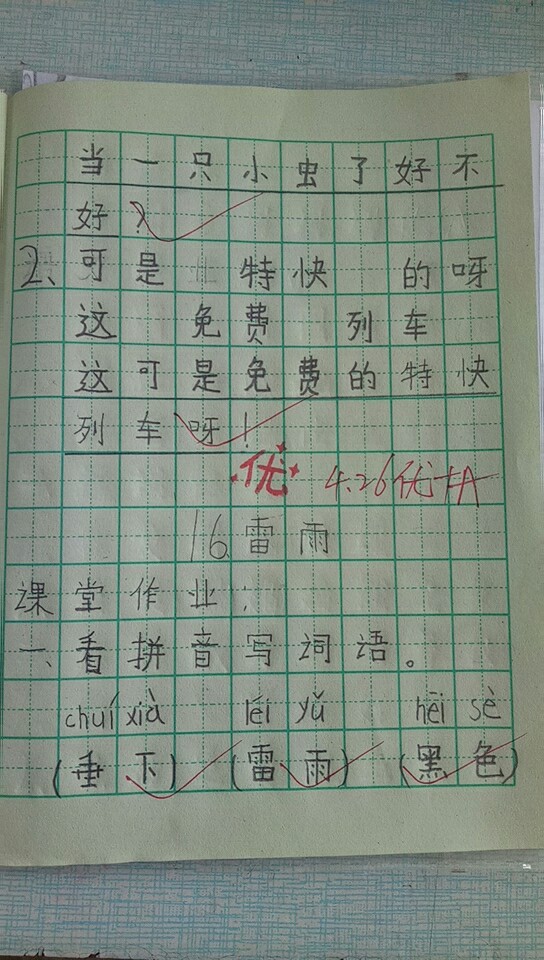 当一只小虫了好不
好？
2、可是 特快 的呀
这 免费 列车
这可是免费的特快
列车呀！
优 4.26优
16、雷雨
课堂作业：
一、看拼音写词语。
chuí xià léi yǔ hēi sè
(垂下) (雷雨) (黑色)